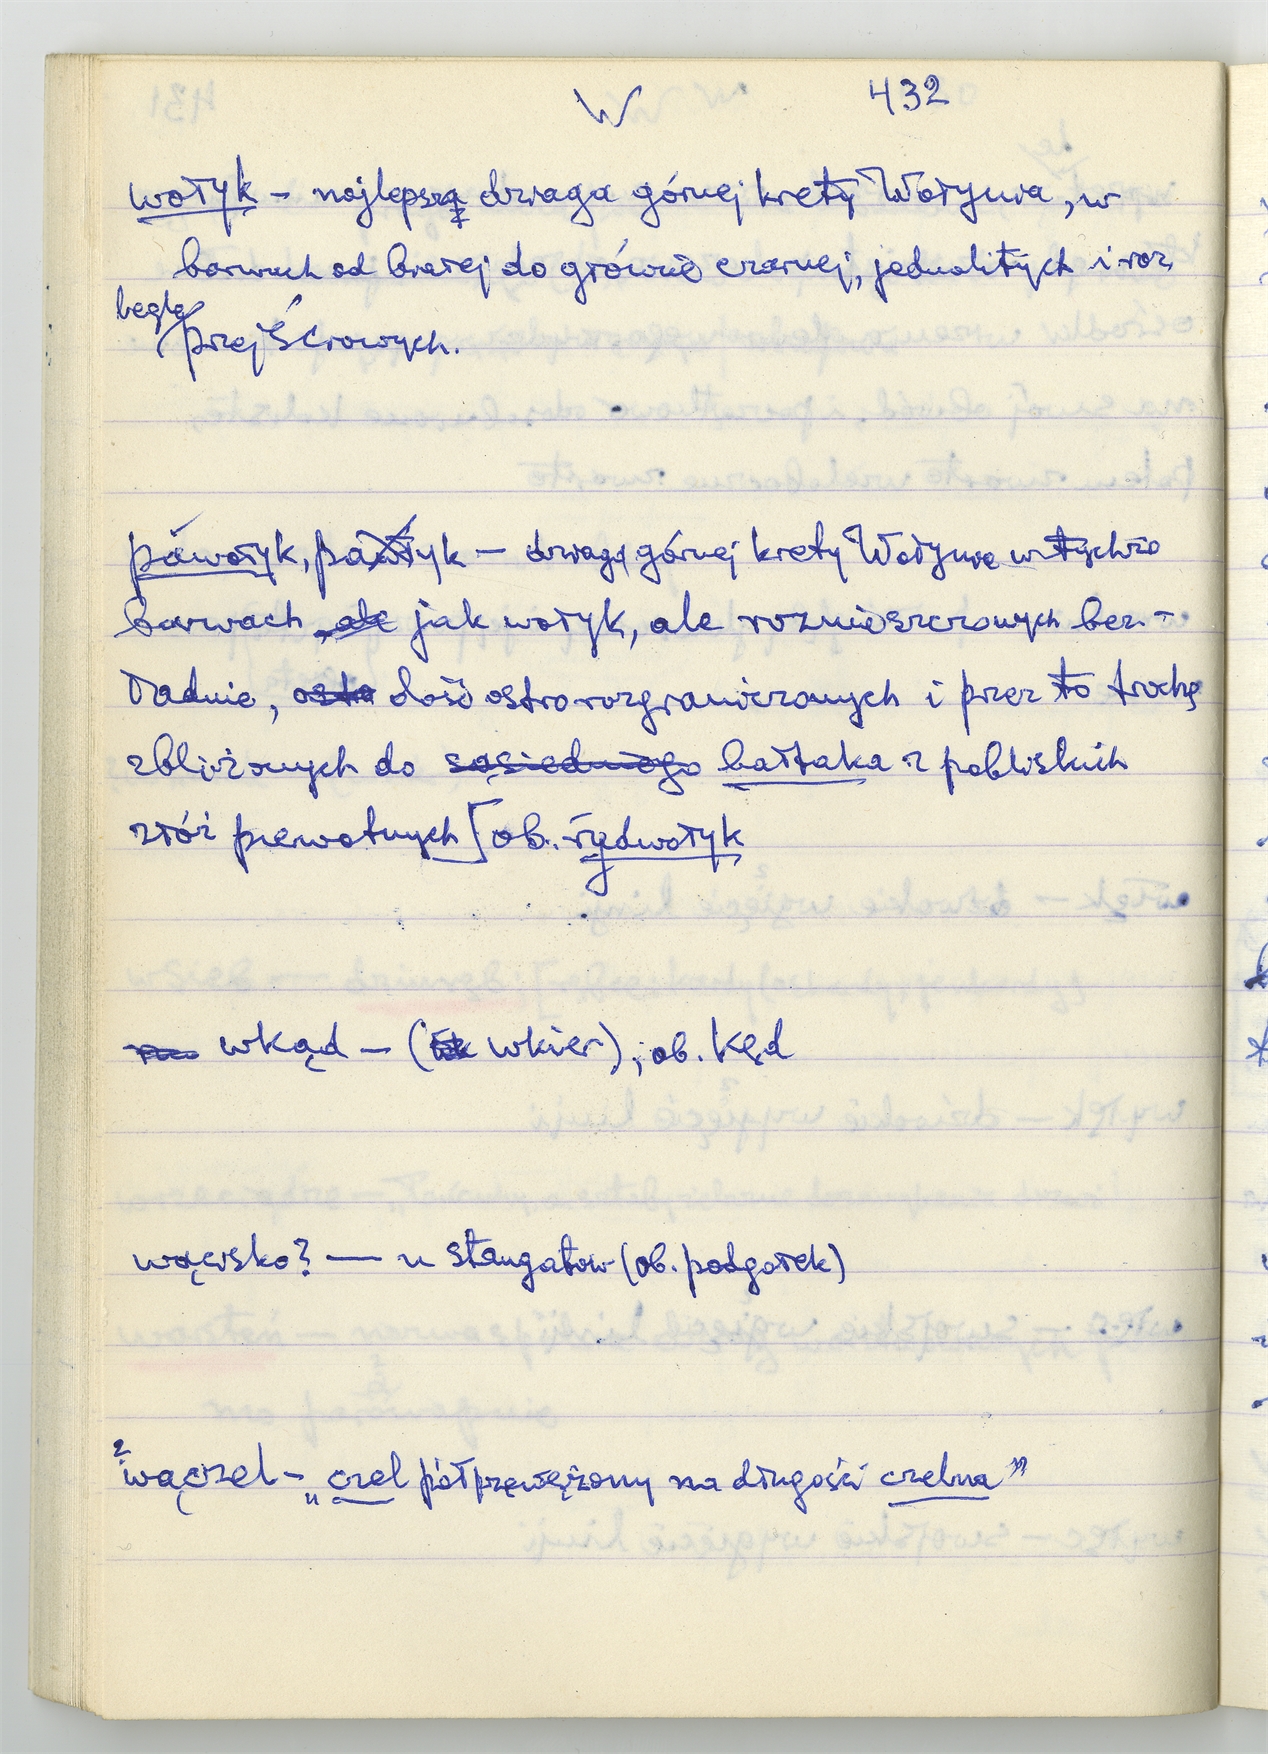 W 432
wołyk – najlepszą dzwaga górnej krety Wołynia, w
barwach od białej do głównie czarnej, jednolitych i roz
beglę
przejściowych.
páwołyk, – dzwaga górnej krety Wołynia w tychże
barwach jak wołyk, ale rozmieszczonych bez-
ładnie, dość ostro rozgraniczonych i przez to trochę
zbliżonych do sąsiedniego bałtaka z pobliskich
złóż pierwotnych [ob. rydwołyk
wkąd – (wkier); ob. Kęd
wącisko? — u (ob. podgołek)
² wączel – „czel półprzewężony na długości czelna”